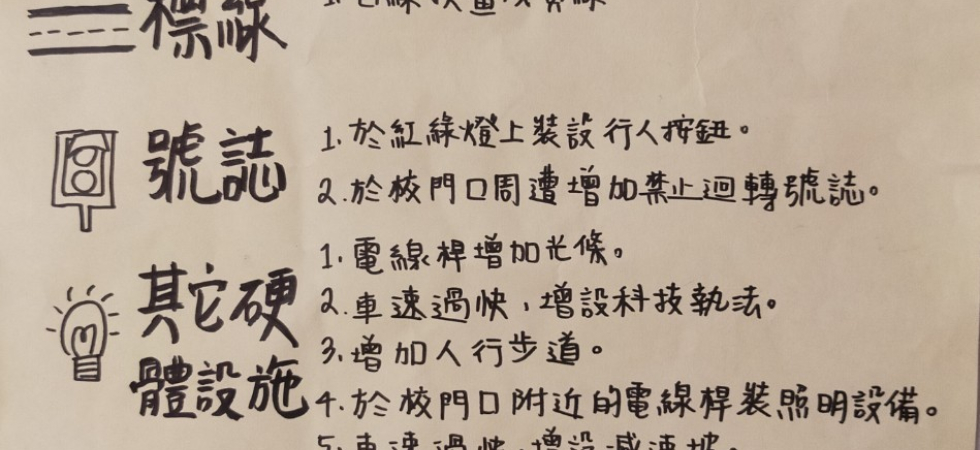 標線
號誌
1.於紅綠燈上裝設行人按鈕。
2.於校門口周遭增加禁止迴轉號誌。
其它硬
體設施
1.電線桿增加光條。
2.車速過快，增設科技執法。
3.增加人行步道。
4.於校門口附近的電線桿裝照明設備。
5.車速過快，增設減速坡。